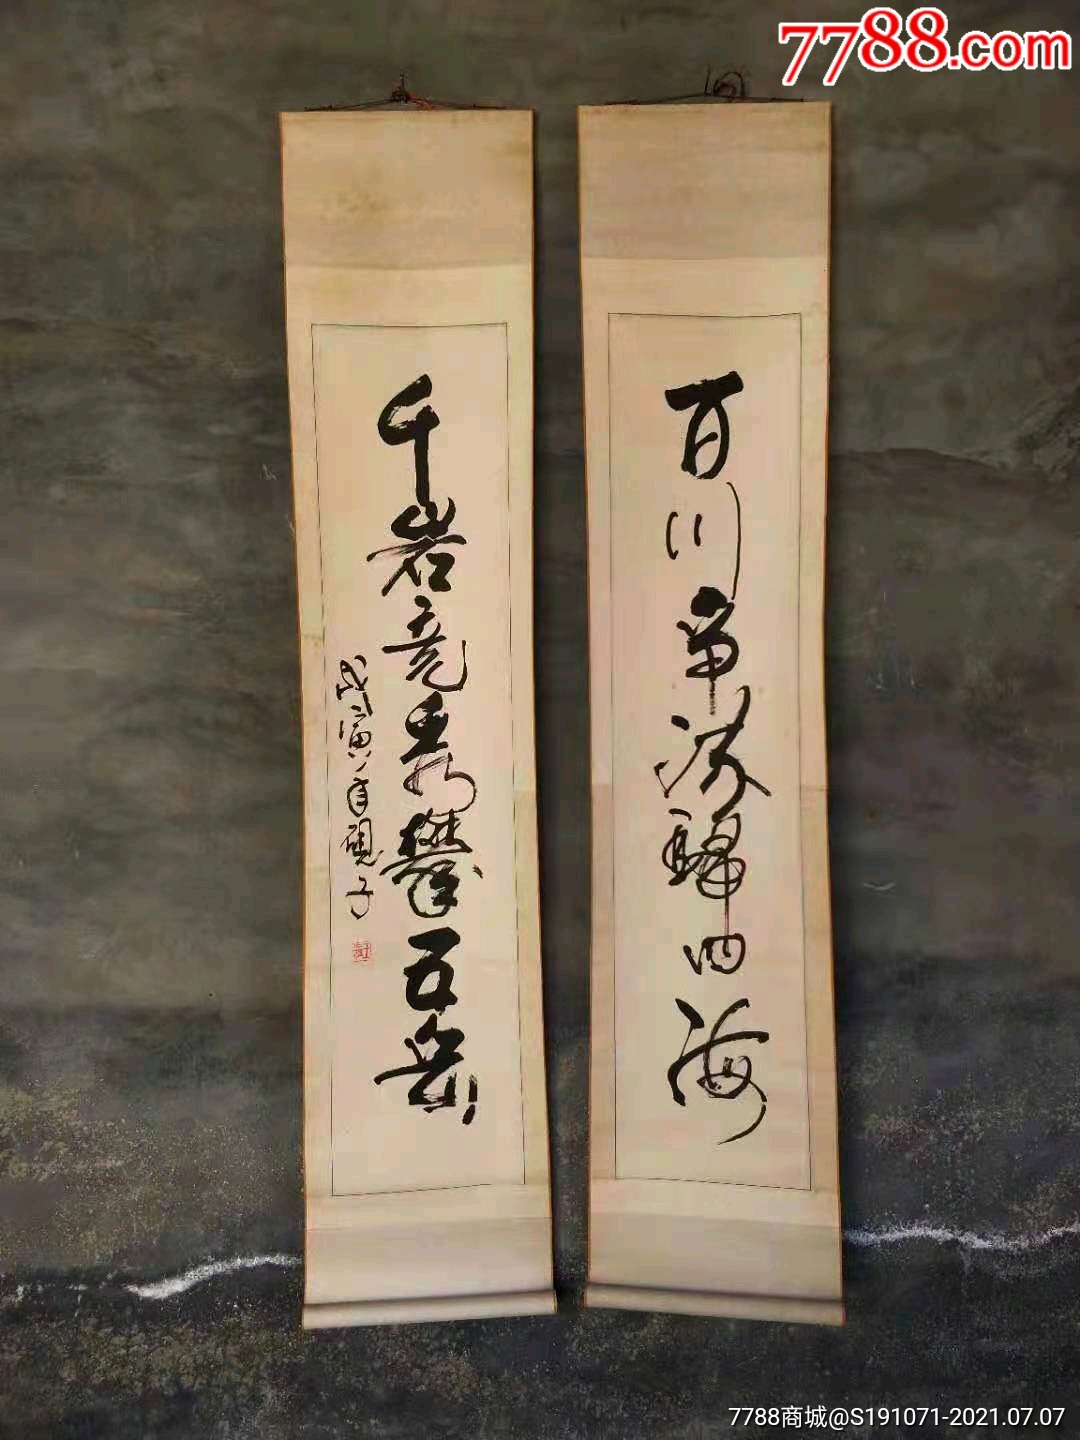 7788.com
百川争流歸四海
千岩竞秀攀五岳
戊寅年砚子
7788商城@S191071-2021.07.07